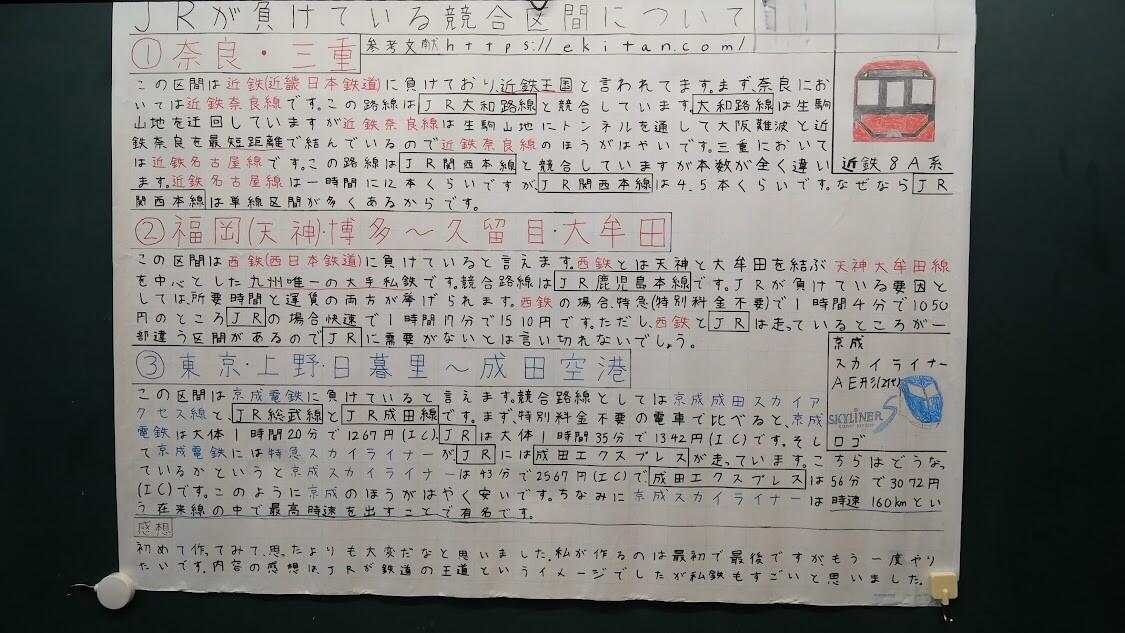 JRが負けている競合区間について
①奈良・三重
参考文献https://ekitan.com/
この区間は近鉄(近畿日本鉄道)に負けており、近鉄王国と言われてます。まず、奈良にお
いては近鉄奈良線です。この路線はJR大和路線と競合しています。大和路線は生駒
山地を迂回していますが近鉄奈良線は生駒山地にトンネルを通して大阪難波と近
鉄奈良を最短距離で結んでいるので近鉄奈良線のほうがはやいです。三重において
は近鉄名古屋線です。この路線はJR関西本線と競合していますが本数が全く違い
ます。近鉄名古屋線は一時間に12本くらいですが、JR関西本線は4、5本くらいです。なぜならJR
関西本線は単線区間が多くあるからです。
近鉄8A系
②福岡(天神)・博多〜久留目・大牟田
この区間は西鉄(西日本鉄道)に負けていると言えます。西鉄とは天神と大牟田を結ぶ天神大牟田線
を中心とした九州唯一の大手私鉄です。競合路線はJR鹿児島本線です。JRが負けている要因と
しては、所要時間と運賃の両方が挙げられます。西鉄の場合、特急(特別料金不要)で1時間4分で1050
円のところJRの場合快速で1時間17分で1510円です。ただし、西鉄とJRは走っているところが一
部違う区間があるのでJRに需要がないとは言い切れないでしょう。
③東京・上野・日暮里〜成田空港
この区間は京成電鉄に負けていると言えます。競合路線としては京成成田スカイア
クセス線と、JR総武線とJR成田線です。まず、特別料金不要の電車で比べると、京成
電鉄は大体1時間20分で1267円(IC)、JRは大体1時間35分で1342円(IC)です。そし
て京成電鉄には特急スカイライナーがJRには成田エクスプレスが走っています。こちらはどうなっ
ているかというと京成スカイライナーは43分で2567円(IC)で成田エクスプレスは56分で3072円
(IC)です。このように京成のほうがはやく安いです。ちなみに京成スカイライナーは時速160kmとい
う在来線の中で最高時速を出すことで有名です。
京成
スカイライナー
AE形(2代)
SKYLINER
ロゴ
感想
初めて作ってみて、思ったよりも大変だなと思いました。私が作るのは最初で最後ですがもう一度やり
たいです。内容の感想はJRが鉄道の王道というイメージでしたが私鉄もすごいと思いました。